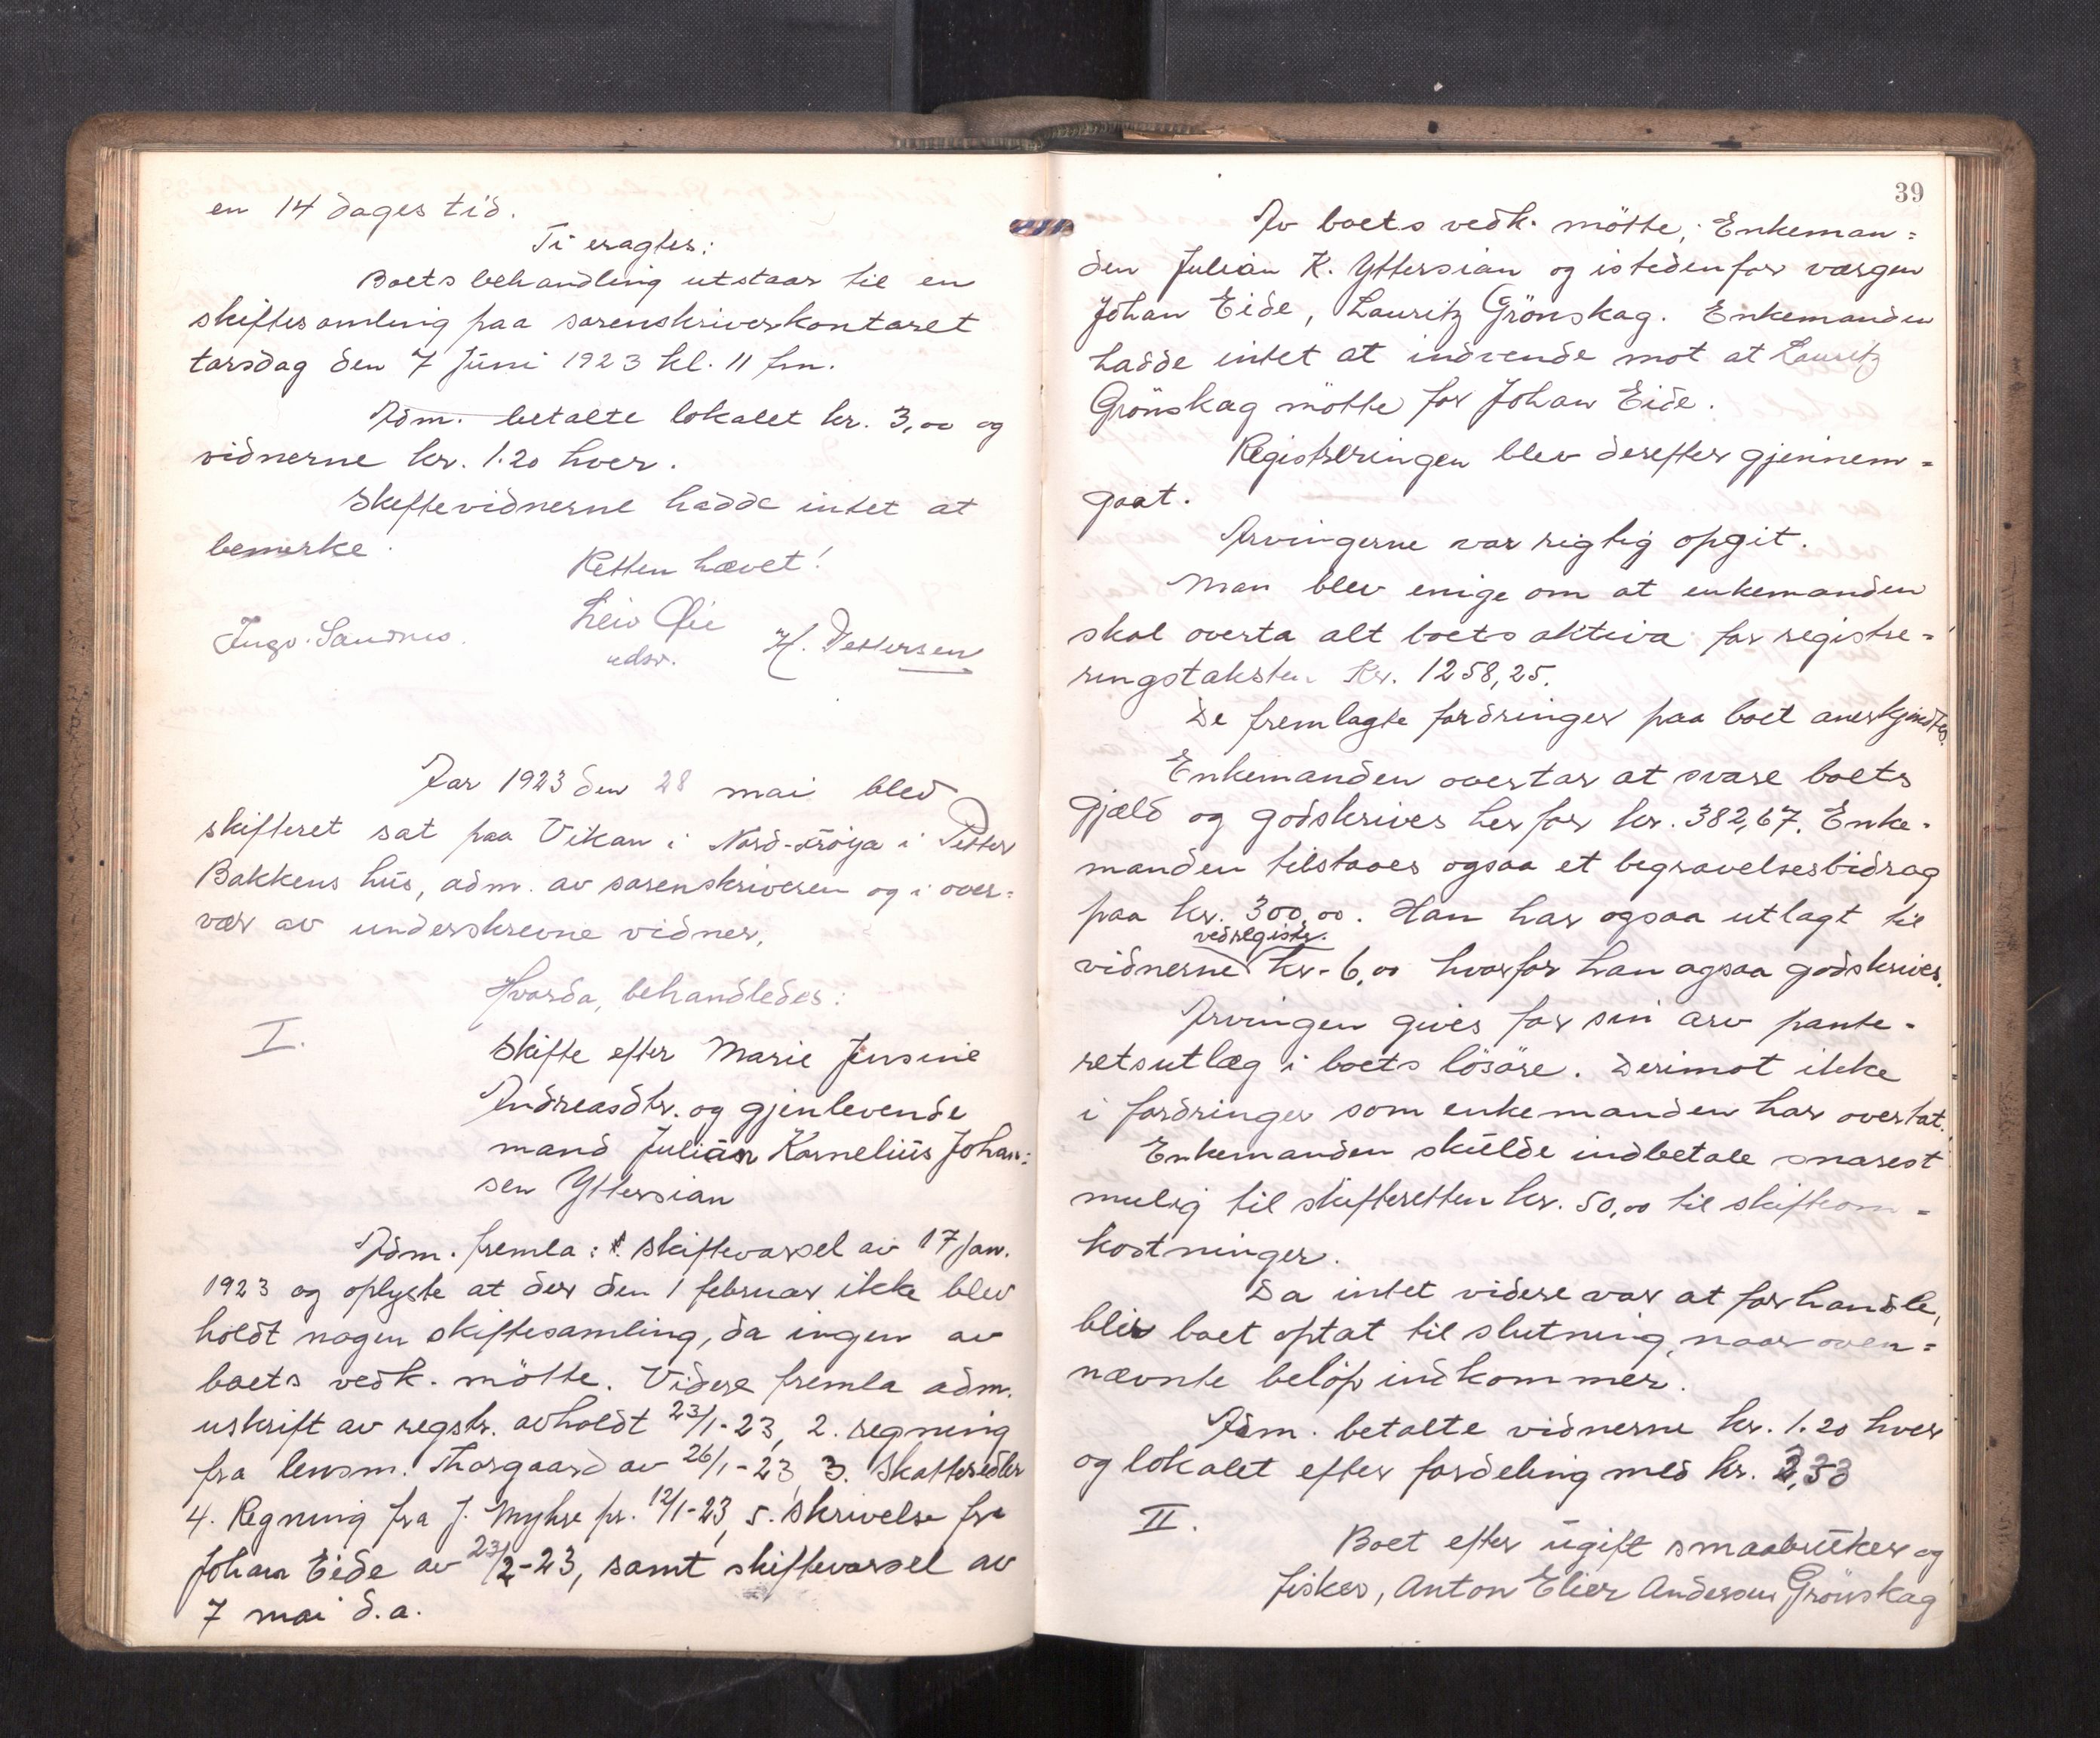 en 14 dages tid.
Ti eragtes:
Boets behandling utstaar til en
skiftesamling paa sorenskriverkontoret
torsdag den 7 juni 1923 kl. 11 fm.
Adm. betalte lokalet kr. 3,00 og
vidnerne kr. 1.20 hver.
Skiftevidnerne hadde intet at
bemerke.
Retten hævet!
Leiv Øie
Ingv. Sandnes. edsv. H. Pettersen
Aar 1923 den 28 mai blev
skifteret sat paa Vikan i Nord-Frøya i Petter
Bakkens hus, adm. av sorenskriveren og i over=
vær av underskrevne vidner,
Hvorda, behandledes:
I.
Skifte efter Marie Jensine
Andreasdtr. og gjenlevende
mand Julian Kornelius Johan=
sen Yttersian
Adm. fremla: 1. skiftevarsel av 17 jan.
1923 og oplyste at der den 1 februar ikke blev
holdt nogen skiftesamling, da ingen av
boets vedk. mötte. Videre fremla adm.
uskrift av regstr. avholdt 23/1-23, 2. regning
fra lensm. Thorgaard av 26/1-23, 3. Skatteseddler
4. Regning fra J. Myhre pr. 12/1-23, 5. Skrivelse fra
Johan Eide av 23/2-23, samt skiftevarsel av
7 mai d.a.
39
Av boets vedk. mötte; Enkeman=
den Julian K. Yttersian og istedenfor værgen
Johan Eide, Lauritz Grönskag. Enkemanden
hadde intet at indvende mot at Lauritz
Grönskag mötte for Johan Eide.
Registreringen blev derefter gjennem=
gaat.
Arvingerne var rigtig opgit.
Man blev enige om at enkemanden
skal overta alt boets aktiva for registre=
ringstaksten Kr. 1258,25.
De fremlagte fordringer paa boet anerkjendtes.
Enkemanden overtar at svare boets
gjæld og godskrives herfor kr. 382,67. Enke=
manden tilstaaes ogsaa et begravelsesbidrag
paa kr. 300,00. Han har ogsaa utlagt til
ved registr.
vidnerne kr. 6,00 hvorfor han ogsaa godskrives.
Arvingen gives for sin arv pante=
retsutlæg i boets lösöre. Derimot ikke
i fordringer som enkemanden har overtat.
Enkemanden skulde indbetale snarest
mulig til skifteretten kr. 50,00 til skifteom=
kostninger.
Da intet videre var at forhandle,
blir boet optat til slutning, naar oven=
nævnte belöp indkommer.
Adm. betalte vidnerne kr. 1.20 hver
og lokalet efter fordeling med kr. 2,33
II.
Boet efter ugift smaabruker og
fisker, Anton Elier Andersen Grönskag